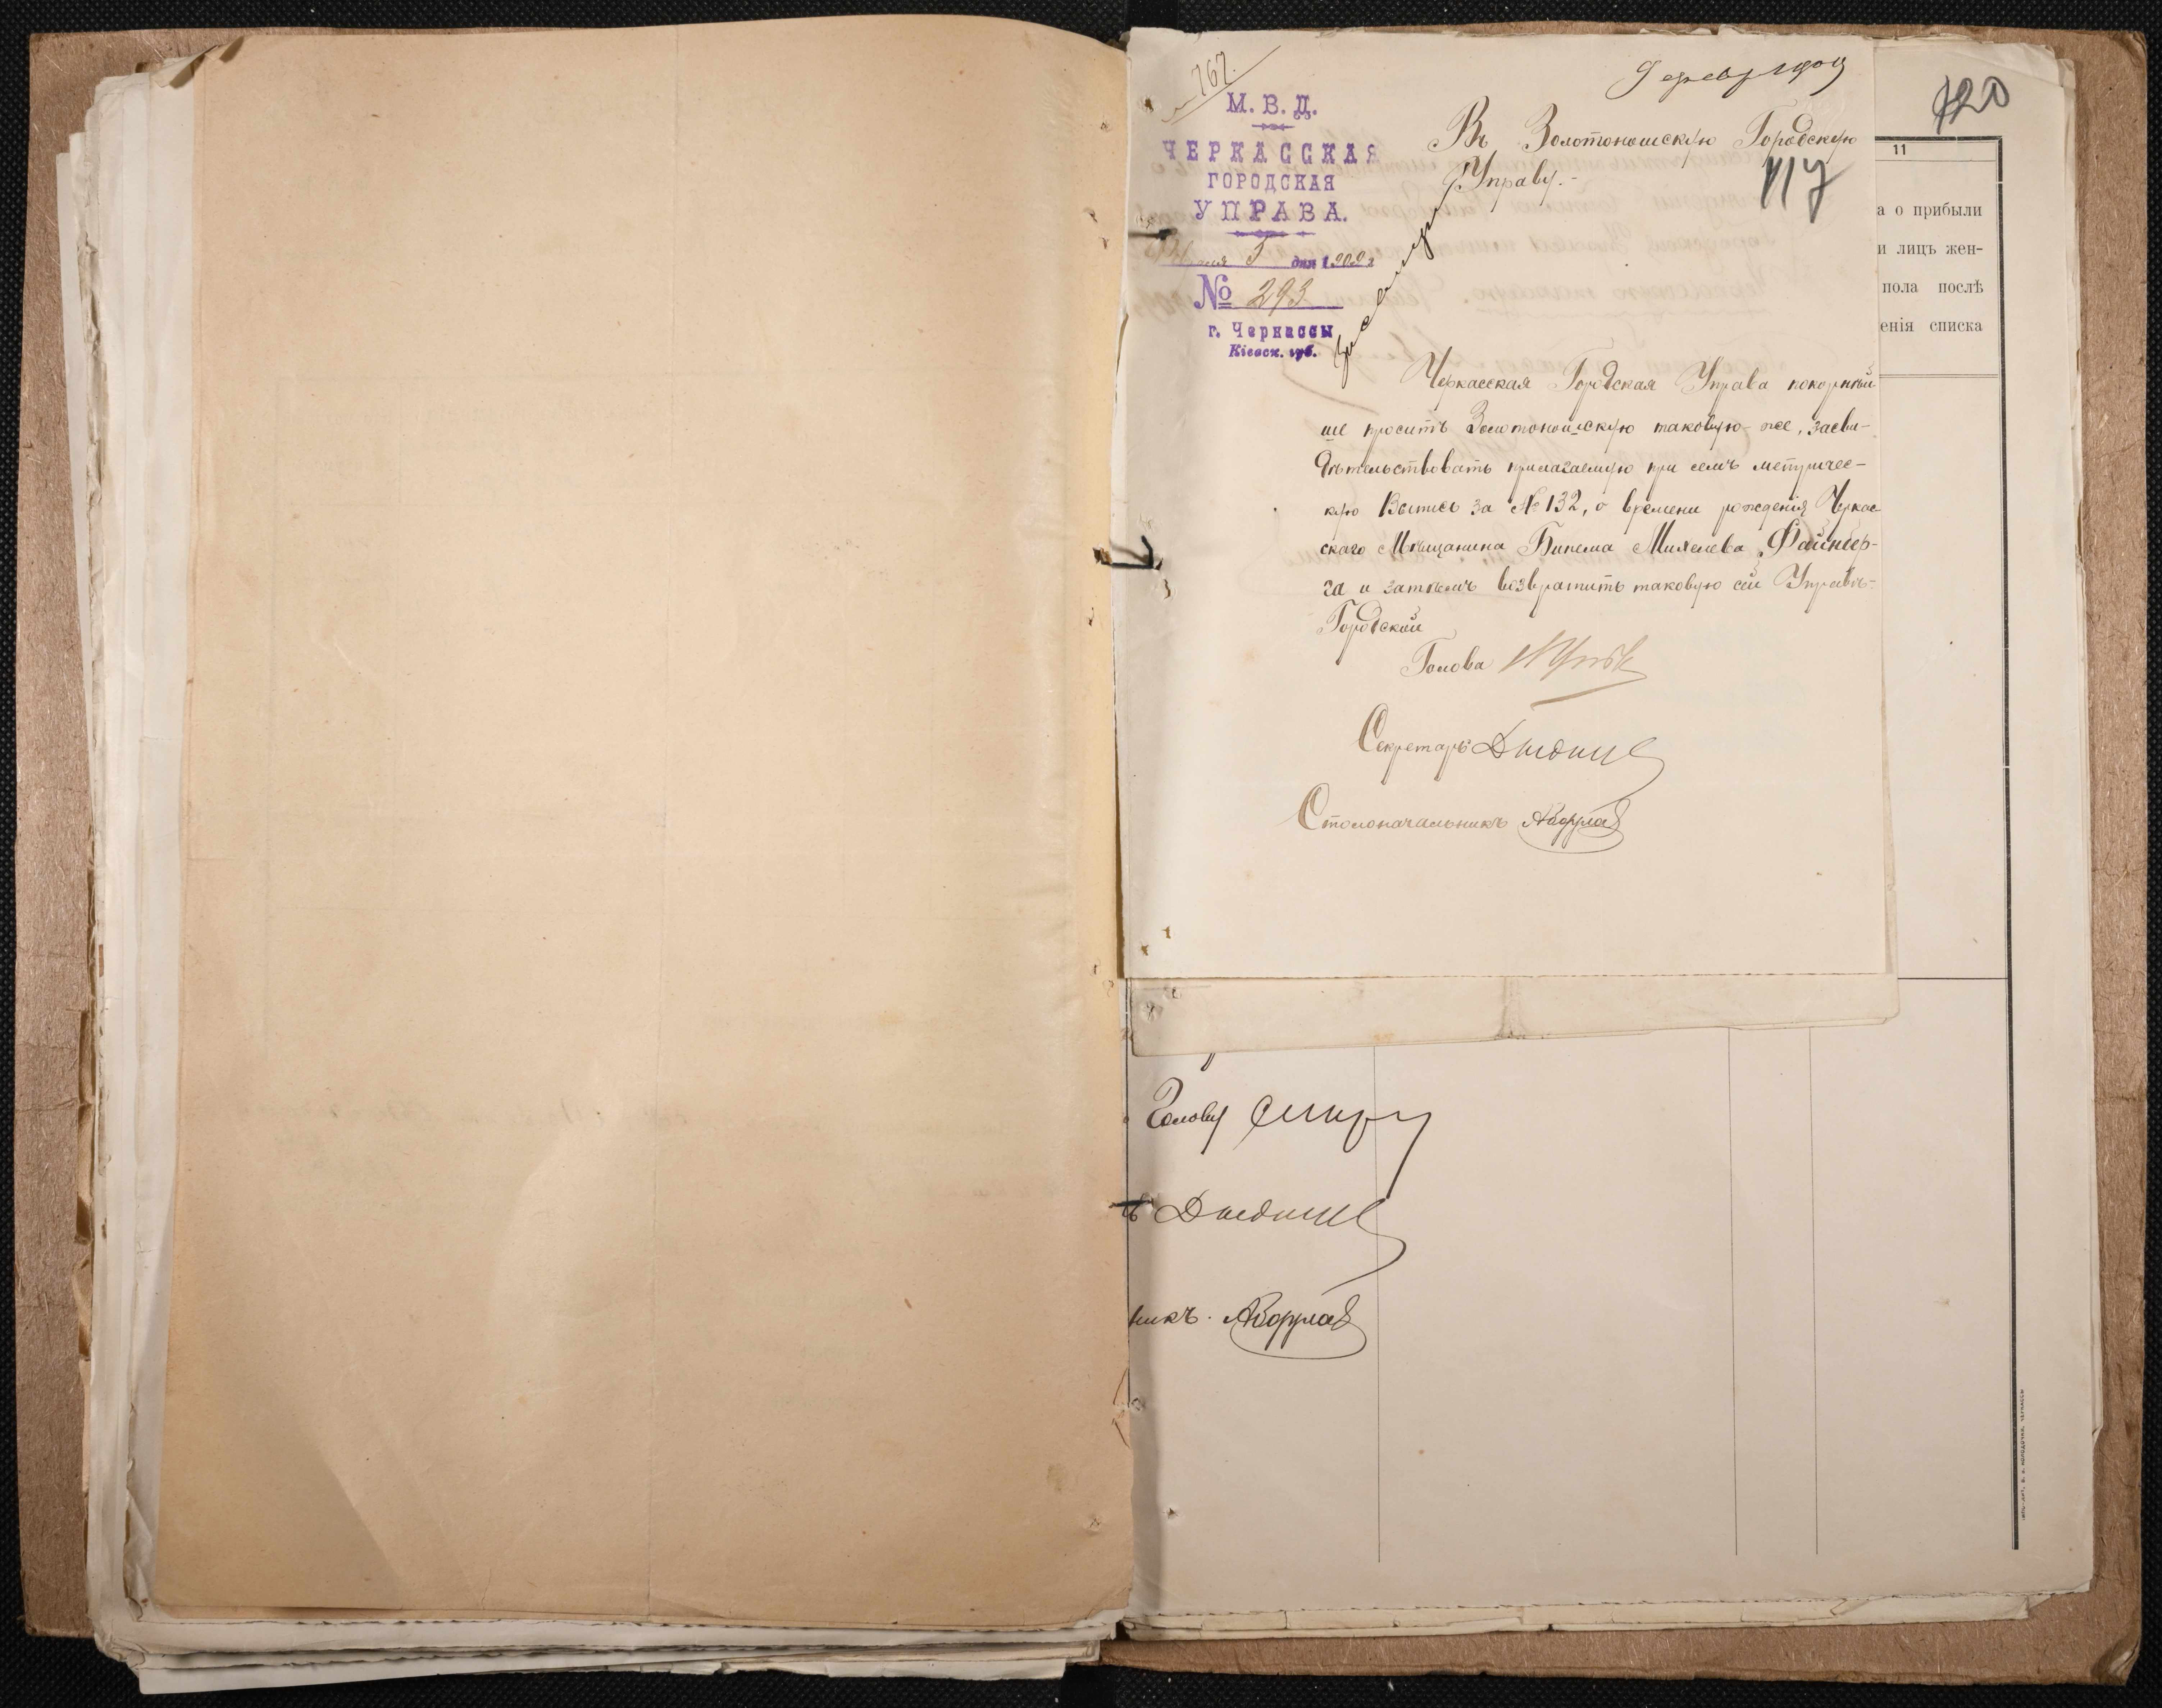 767.
М. В. Д.
ЧЕРКАССКАЯ
ГОРОДСКАЯ
УПРАВА.
5 дня 1909 г
№ 293
г. Черкассы
Кіевск. губ.
120
117
Въ Золотоношскую Городскую
Управу.-
Черкасская Городская Управа покорнѣй
ше проситъ Золотоношскую таковую-же, засви-
дѣтельствовать прилагаемую при семъ метричес-
кую Выпись за № 132, о времени рожденія Черкас
скаго Мѣщанина Михелева Файнбер-
га и затѣмъ возвратить таковую сей Управѣ-
Городской
Голова
Секретарь
Столоначальникъ
11
а о прибыли
и лицъ жен-
пола послѣ
енія списка
Голову
ъ
никъ.